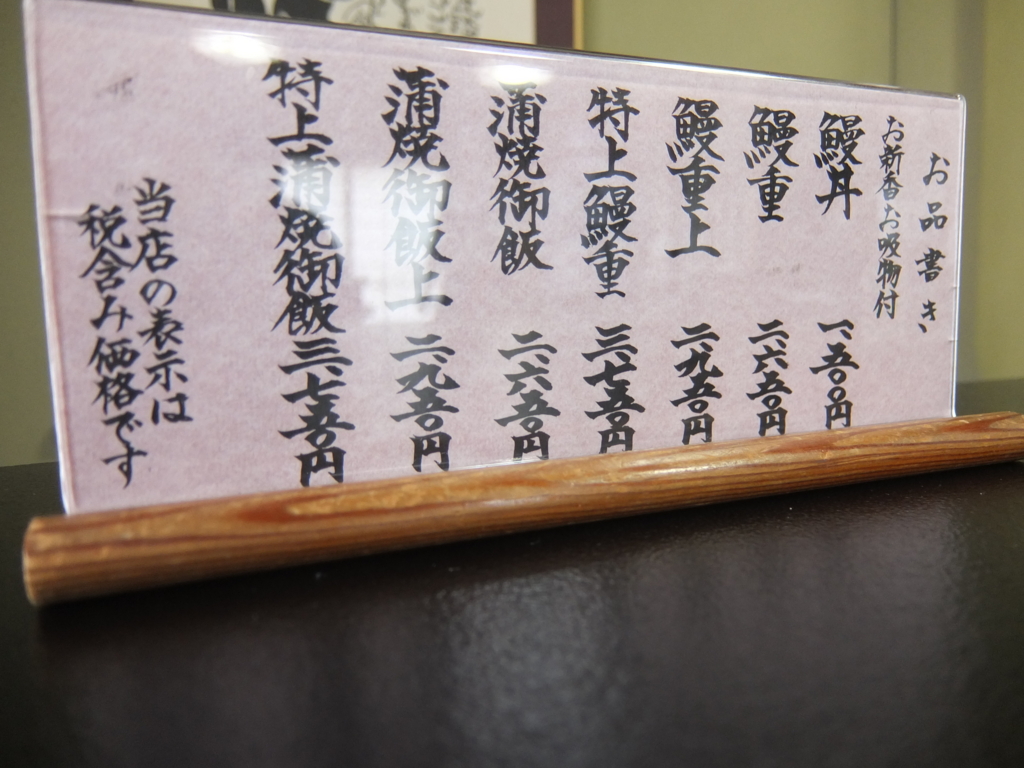 お品書き
お新香お吸物付
鰻丼 一、五〇〇円
鰻重 二、六五〇円
鰻重上 二、九五〇円
特上鰻重 三、七五〇円
蒲焼御飯 二、六五〇円
蒲焼御飯上 二、九五〇円
特上蒲焼御飯 三、七五〇円
当店の表示は
税含み価格です